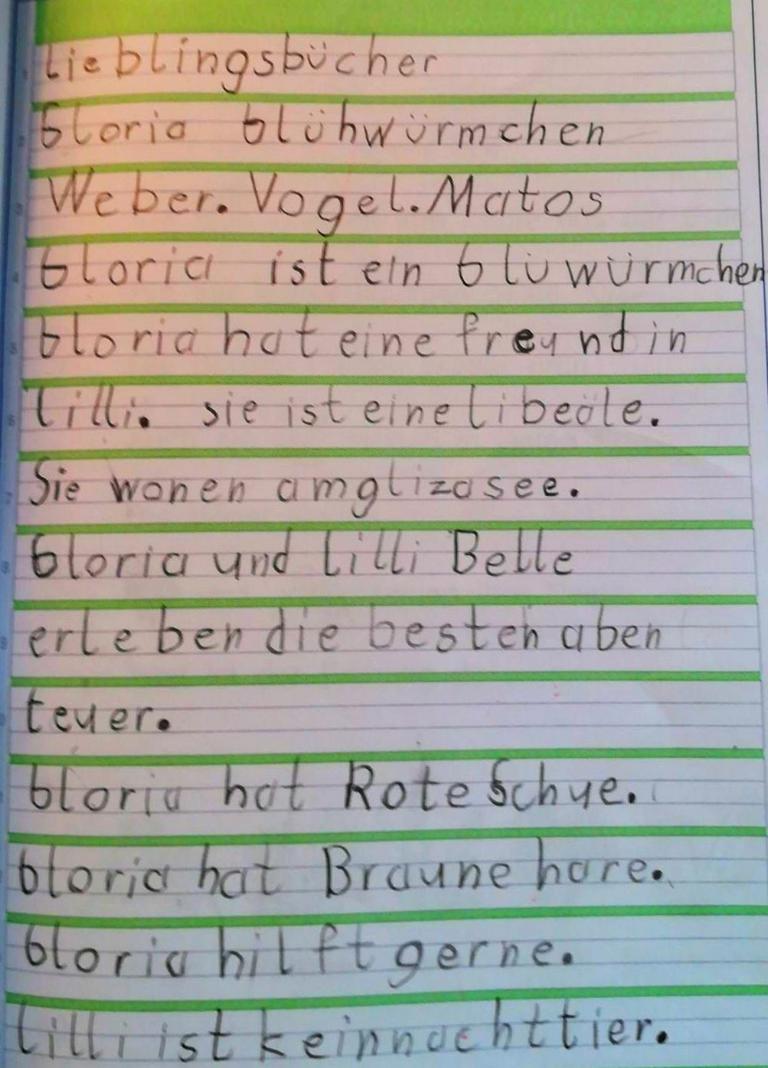 Lieblingsbücher
Gloria Glühwürmchen
Weber. Vogel. Matos
Gloria ist ein Glüwürmchen
Gloria hat eine freundin
Lilli. sie ist eine libeöle.
Sie wonen am glizasee.
Gloria und Lilli Belle
erleben die besten aben
teuer.
Gloria hat Rote Schue.
Gloria hat Braune hare.
Gloria hilft gerne.
Lilli ist kein nachttier.